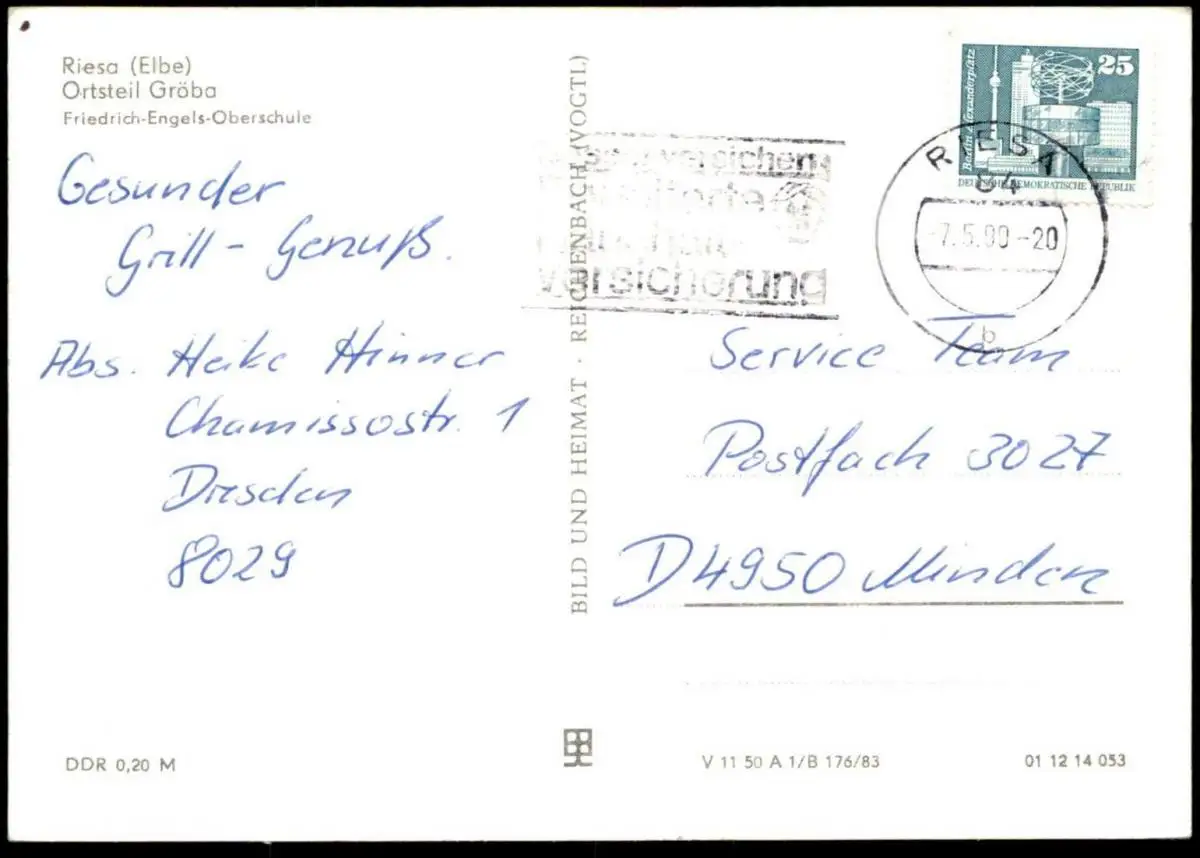 Riesa (Elbe)
Ortsteil Gröba
Friedrich-Engels-Oberschule
Gesunder
Grill-Genuß.
Abs. Heike Hinner
Chamissostr. 1
Dresden
8029
BILD UND HEIMAT · REICHENBACH (VOGTL)
versichern
versicherung
25
Berlin, Alexanderplatz
DEUTSCHE DEMOKRATISCHE REPUBLIK
RIESA
-7.5.90-20
b
Service Team
Postfach 3027
D4950 Minden
DDR 0,20 M
V 11 50 A 1/B 176/83
01 12 14 053